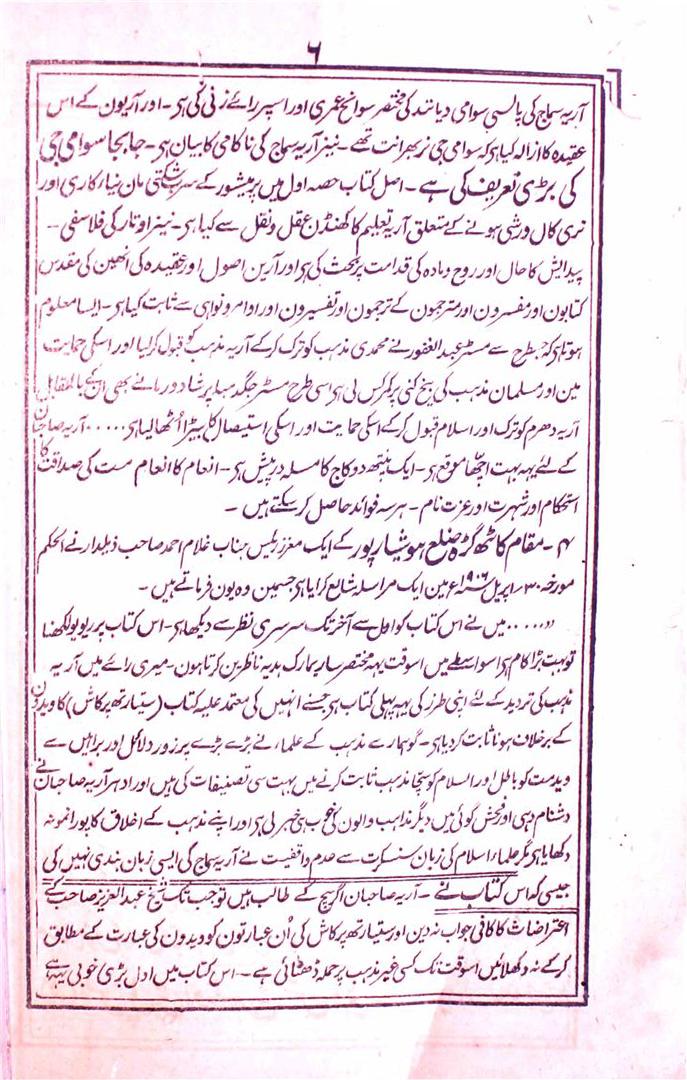 ۶
آریہ سماج کی پالسی سوامی دیانند کی مختصر سوانح عمری اور اسپر رائے زنی کی ہی ۔ اور آریون کے اس
عقیدہ کا ازالہ کیا ہی کہ سوامی جی نربھرانت تھے ۔ نیز آریہ سماج کی ناکامی کا بیان ہی ۔ جابجا سوامی جی
کی بڑی تعریف کی ہے ۔ اصل کتاب حصہ اول مین پرمیشور کے سرب شکتی مان نیاءکاری اور
تری کال ورشی ہونے کے متعلق آریہ تعلیم کا کھنڈن عقل و نقل سے کیا ہی ۔ نیز اوتار کی فلاسفی ۔
پیدایش کا حال اور روح و مادہ کی قدامت پر بحث کی ہی اور آرین اصول اور عقیدہ کی انھین کی مقدس
کتابون اور مفسرون اور مترجمون کے ترجمون اور تفسیرون اور اوامر و نواہی سے ثابت کیا ہی ۔ ایسا معلوم
ہوتا ہی کہ جسطرح سے مسٹر عبدالغفور نے محمدی مذہب کو ترک کر کے آریہ مذہب کو قبول کر لیا اور اسکی حمایت
مین اور مسلمان مذہب کی بیخ کنی پر کمر کس لی ہی اسی طرح مسٹر جگدمبا پرشاد ورما نے بھی ان کے بالمقابل
آریہ دھرم کو ترک اور اسلام قبول کر کے اسکی حمایت اور اسکی استیصال کا بیڑا اُٹھا لیا ہی ۔۔۔۔۔ آریہ صاحبان
کے لئے یہہ بہت اچھا موقع ہی ۔ ایک پنتھ دو کاج کا مسلہ درپیش ہی ۔ انعام کا انعام مت کی صداقت کا
استحکام اور شہرت اور عزت نام ۔ ہر سہ فوائد حاصل کر سکتے ہیں ۔
۴ ۔ مقام کاٹھ گڑھ ضلع ہوشیارپور کے ایک معزز رئیس جناب غلام احمد صاحب ذیلدار نے الحکم
مورخہ ۳۰؍ اپریل ۱۹۰۶ء مین ایک مراسلہ شایع کرایا ہی جسمین وہ یون فرماتے ہیں ۔
”۔۔۔۔۔ میں نے اس کتاب کو اول سے آخر تک سرسری نظر سے دیکھا ہی ۔ اس کتاب پر ریویو لکھنا
تو بہت بڑا کام ہی اسواسطے میں اسوقت یہہ مختصر سا ریمارک ہدیہ ناظرین کرتا ہون ۔ میری رائے میں آریہ
مذہب کی تردید کے لئے اپنی طرز کی یہہ پہلی کتاب ہی جسنے انہیں کی معتمد علیہ کتاب (ستیارتھ پرکاش) کا ویدون
کے برخلاف ہونا ثابت کر دیا ہی ۔ گو ہمارے مذہب کے علماء نے بڑے بڑے پر زور دلائل اور براہین سے
ویدمت کو باطل اور اسلام کو سچا مذہب ثابت کرنے میں بہت سی تصنیفات کی ہیں اور ادہر آریہ صاحبان نے
دشنام دہی اور فحش گوئی میں دیگر مذاہب والون کی خوب ہی خبر لی ہی اور اپنے مذہب کے اخلاق کا پورا نمونہ
دکھایا ہی مگر علماء اسلام کی زبان سنسکرت سے عدم واقفیت نے آریہ سماج کی ایسی زبان بندی نہیں کی
جیسی کہ اس کتاب نے ۔ آریہ صاحبان اگر سچ کے طالب ہیں تو جب تک شیخ عبدالعزیز صاحب کے
اعتراضات کا کافی جواب نہ دین اور ستیارتھ پرکاش کی اُن عبارتون کو ویدون کی عبارت کے مطابق
کر کے نہ دکھلائیں اسوقت تک کسی غیر مذہب پر حملہ ڈھٹائی ہے ۔ اس کتاب میں اول بڑی خوبی یہہ ہے